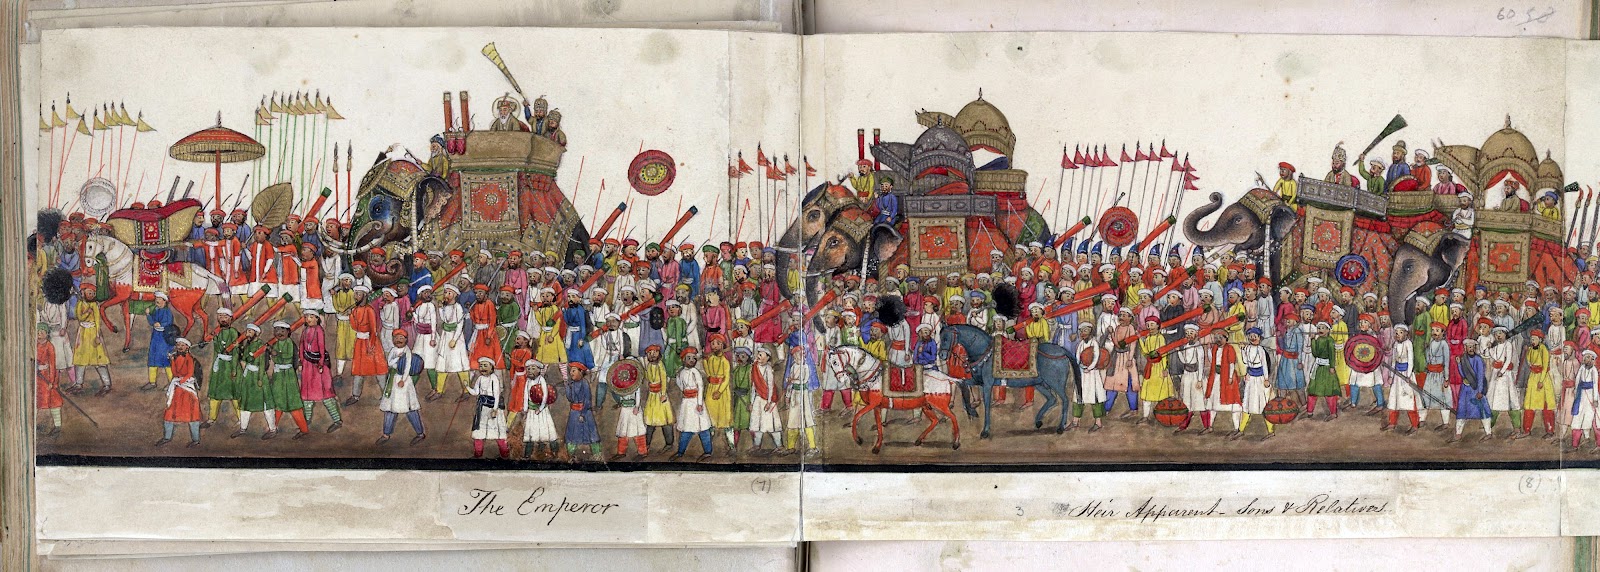 60 58
The Emperor
(7)
3
Heir Apparent - Sons & Relatives.
(8)